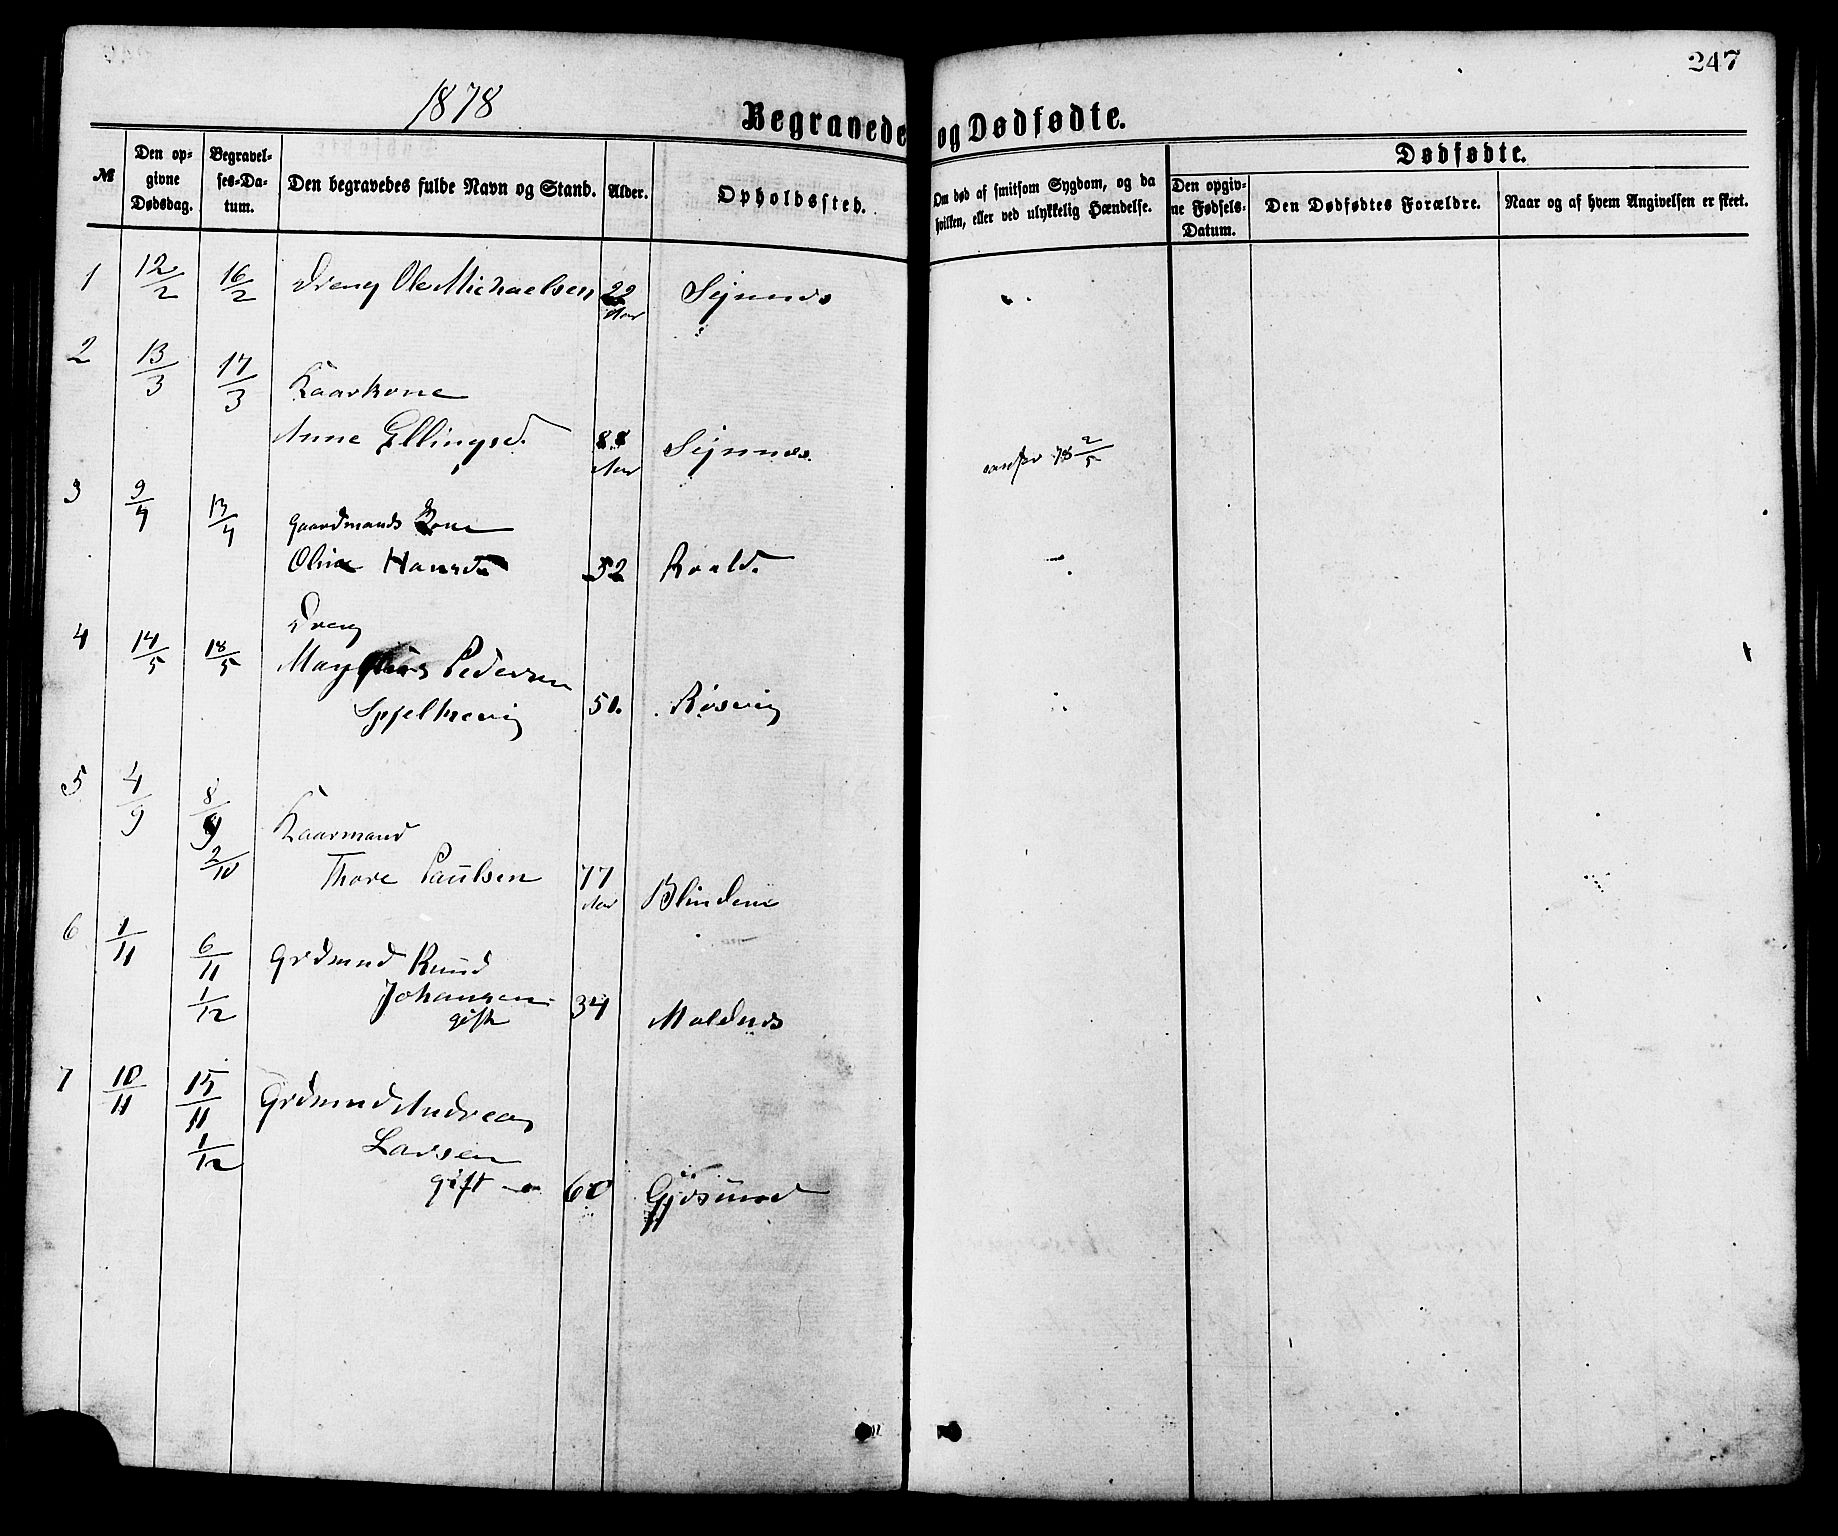 247
1878
Begravede og Dødfødte.
№
Den opgivne Dødsdag.
Begravelses-Datum.
Den begravedes fulde Navn og Stand.
Alder.
Opholdssted.
Om død af smitsom Sygdom, og da hvilken, eller ved ulykkelig Hændelse.
Dødfødte.
Den opgivne Fødsels-Datum.
Den Dødfødtes Forældre.
Naar og af hvem Angivelsen er skeet.
1 12/2 16/2 Dreng Ole Michaelsen 22 Aar Sejnnes
2 13/3 17/3 Kaarkone
Anne Ellingsd. 88 Aar Sejnnes. 78 2/5
3 9/4 13/4 Gaardmands Kone
Oline Hansd 52 Roald.
4 14/5 18/5 Dreng
Magnus Pedersen
Spjelkevig 50. Røsvig
5 4/9 8/9 Kaarmand
2/10 Thore Paulsen 77 Aar Blindem
6 1/11 6/11 Grdmnd Knud
1/12 Johansen 34 Moldnes
gift
7 10/11 15/11 Grdmnd Andreas
1/12 Larsen
gift 60 Gjøsund